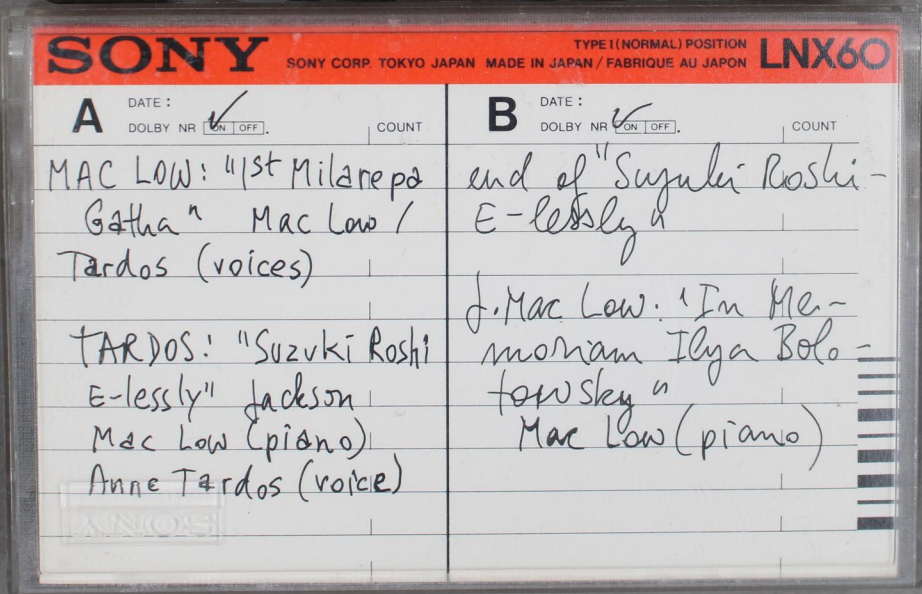 SONY
TYPE I (NORMAL) POSITION
SONY CORP. TOKYO JAPAN MADE IN JAPAN / FABRIQUE AU JAPON
LNX60
A
DATE :
DOLBY NR ON OFF .
COUNT
MAC LOW: "1st Milarepa
Gatha" Mac Low /
Tardos (voices)
TARDOS: "Suzuki Roshi
E-lessly" Jackson
Mac Low (piano)
Anne Tardos (voice)
SONY
B
DATE :
DOLBY NR ON OFF .
COUNT
end of "Suzuki Roshi-
E-lessly"
J. Mac Low: "In Me-
moriam Ilya Bolo-
towsky"
Mac Low (piano)